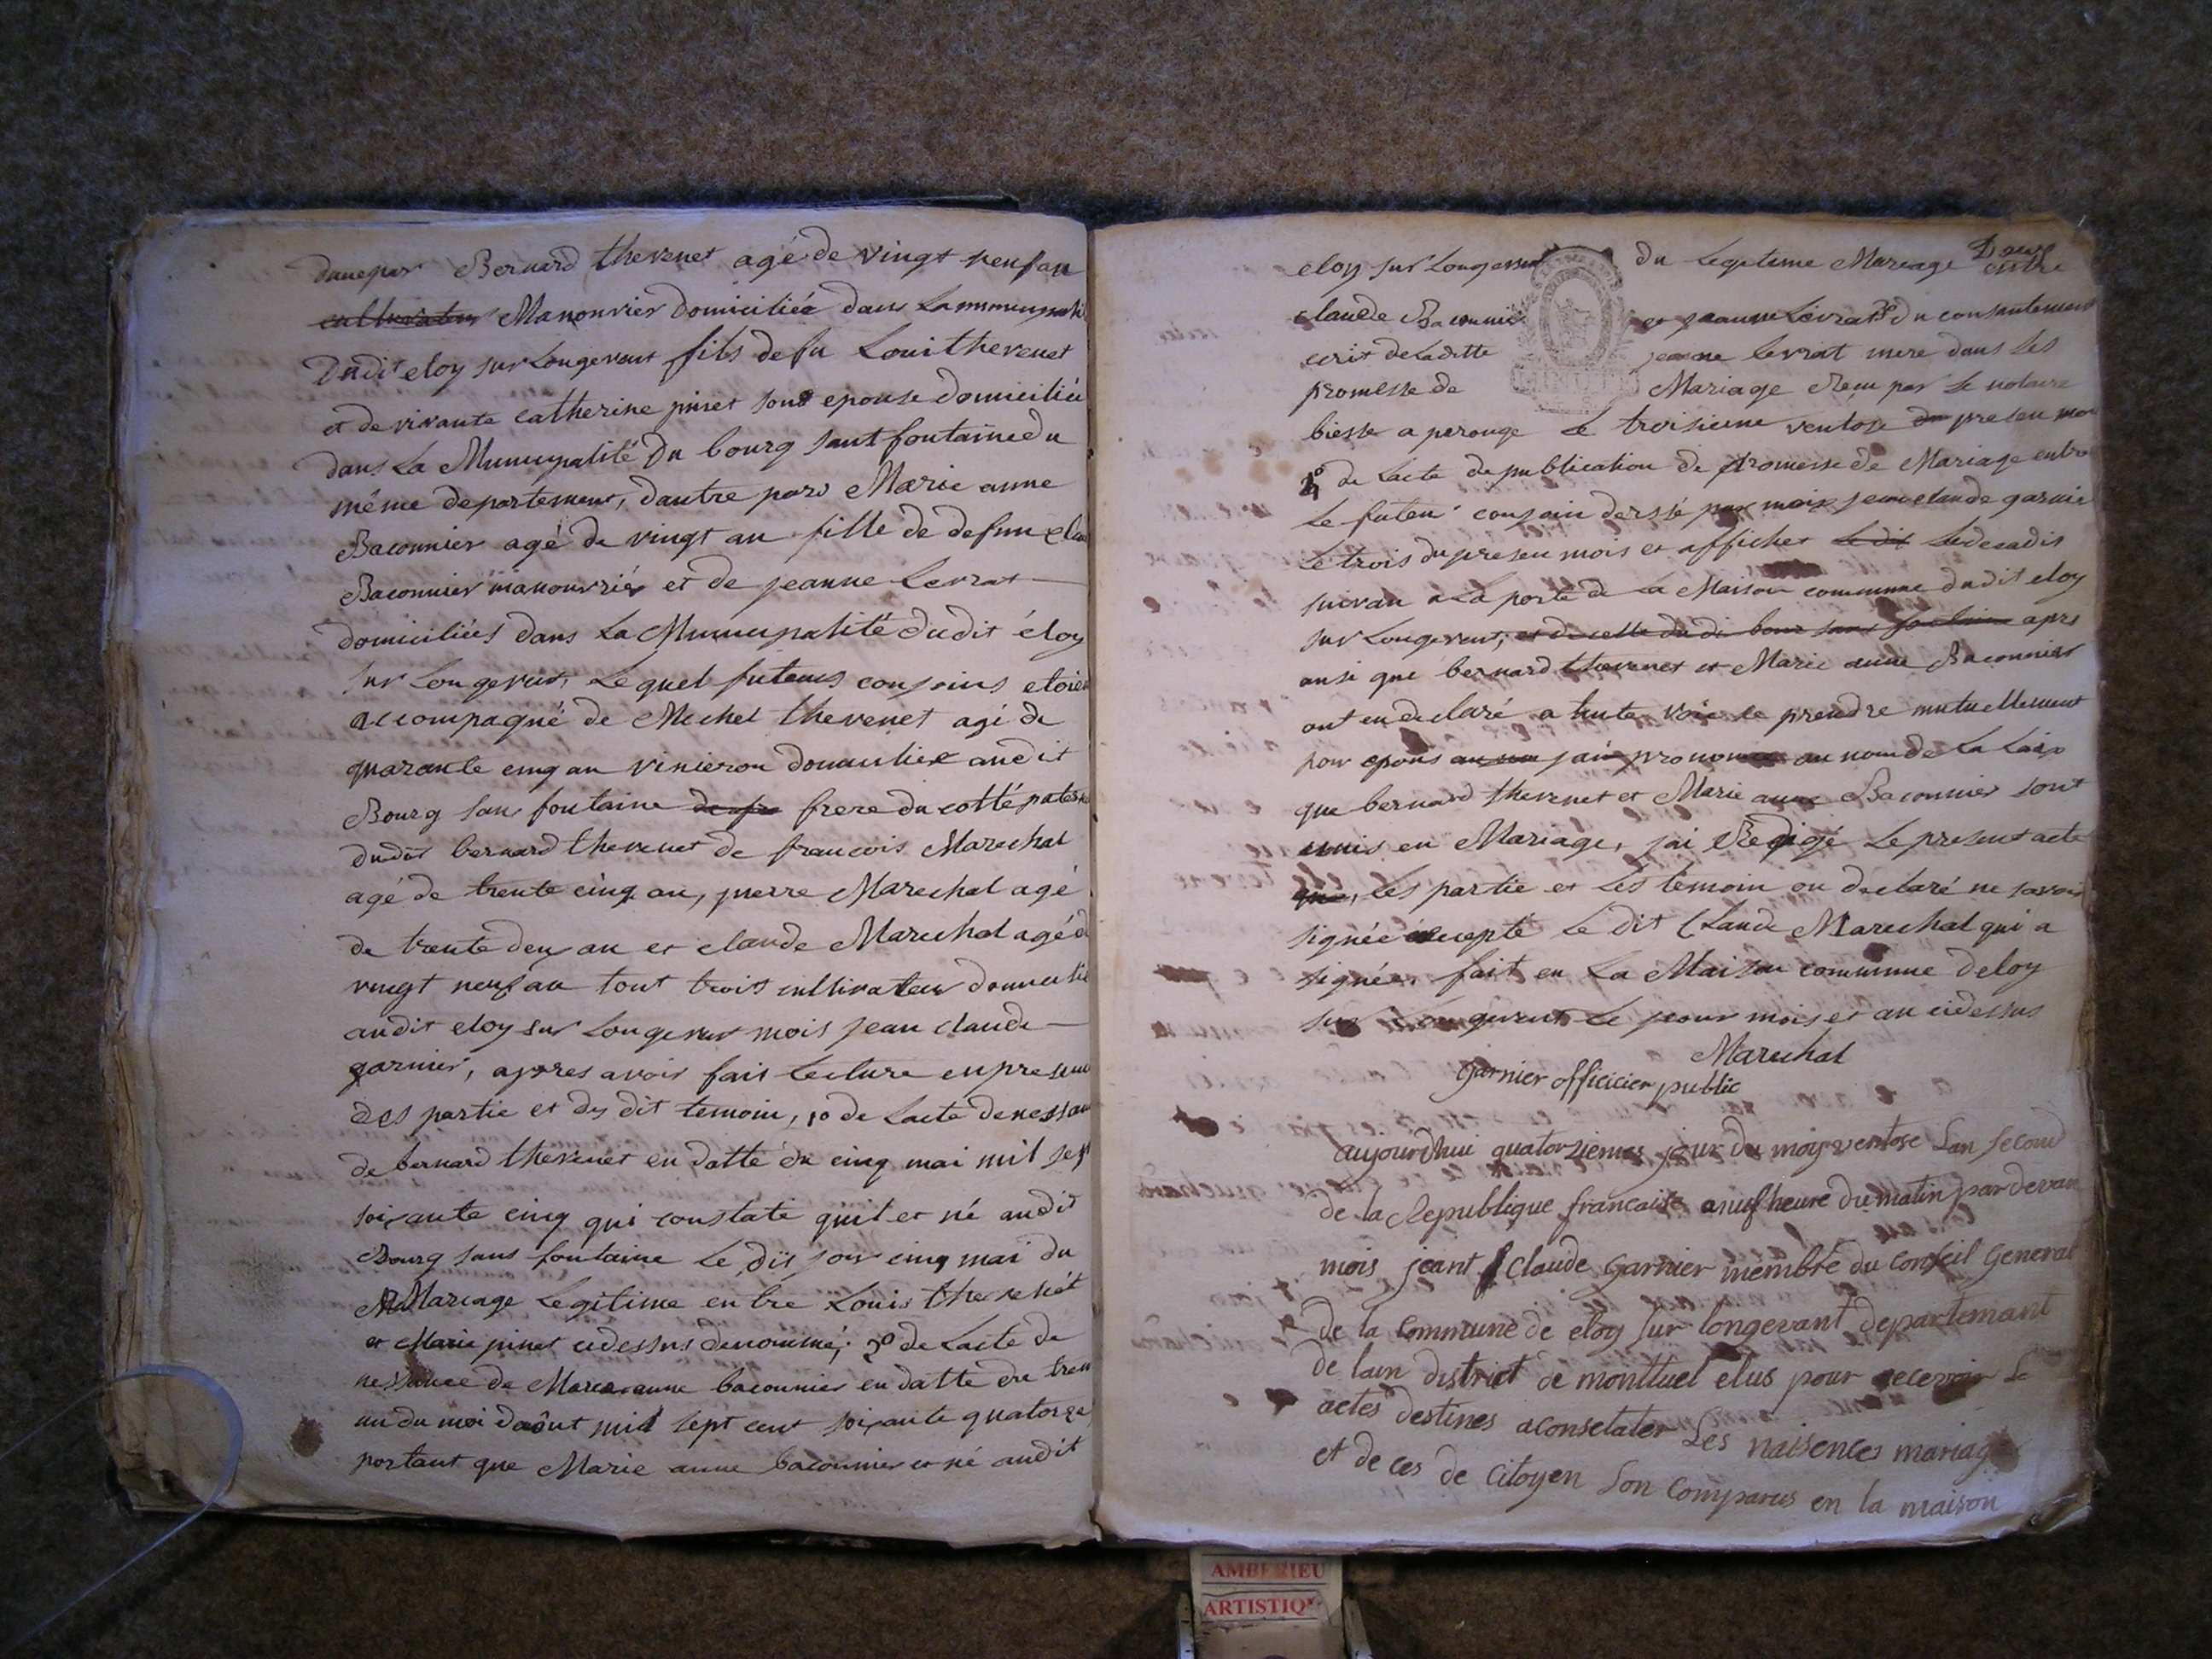 dunepar Bernard thevenet agé de vingt neuf an
cultivateur Manouvrier domiciliée dans La
Dudit eloy sur Longevent fils defu Loui thevenet
et de vivante catherine pinet son epouse domiciliée
dans La Municipalité Du bourg sant fontaine du
même departement, dautre pard Marie anne
Baconnier agé de vingt an fille de defun
Baconnier manouvrier et de jeanne Levrat
domiciliées dans La Municipalité dudit éloy
sur Longevent, Le quel futeurs conjoins etoien
accompagné de Michel thevenet agé de
quarante cinq an vinieron domicilier audit
Bourg sans fontaine frere du cotté paterne
dudit bernard thevenet de francois Marechal
agé de trente cinq an, pierre Marechal agé
de trente deux an et claude Marechal agé d
vingt neuf an tout trois cultivateur
audit eloy sur Longevent mois jean claude
garnier, appres avoir fait Lecture en
des partie et des dit temoin, 1o de Lacte de
de bernard thevenet en datte du cinq mai mil sept
soixante cinq qui constate quil et né audit
Bourg sans fontaine Le dit jour cinq mai du
Mariage Legitime entre Louis thevenet
et Marie pinet cidessus denommé; 2o de Lacte de
nessance de Marie anne baconnier en datte du tren
un du moi daôut mil sept cent soixante quatorze
portant que Marie anne baconnier et né audit
Deux
eloy sur Longevent du Legitime Mariage entre
claude Baconnier et jeanne Levrat 3o du consentement
ecrit de Laditte jeanne Levrat mere dans Les
promesse de Mariage Reçu par Le notaire
biesse a perouge Le troisieme ventose du presen moi
4o de Lacte de publication de promesse de Mariage entre
Le futeur conjoin dressé par mois jean claude garnie
Le trois du presen mois et afficher Le dit Le decadis
suivan a La porte de La Maison commune dudit eloy
sur Longevent; et de celle du di bour sans fontaine apres
ansi que bernard thevenet et Marie anne Baconnier
ont eu declaré a hute voix se prendre mutuellement
pour epous jai prononcé au nom de La Loix
que bernard thevenet et Marie anne Baconnier sont
unis en Mariage, jai Redigé Le present acte
que, Les partie et Les temoin on declaré ne savoir
signée excepté Le dit Claude Marechal qui a
signée, fait en La Maison commune deloy
sur Longevent Le jour mois et an cidessus
Marechal
garnier officicier public
aujourdhui quatorziemes jour du moiy ventose Lan second
de la Republique francaise a neuf heure du matin par devan
mois jeant Claude Garnier membre du conseil General
de la Commune de eloy sur longevant departemant
de lain district de montluel elus pour recevoir Le
actes destines aconsetater Les naisences mariage
et de ces de Citoyen Son Comparus en la maison
AMBERIEU
ARTISTIQ